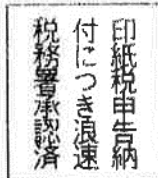 印紙税申告納
付につき浪速
税務署承認済